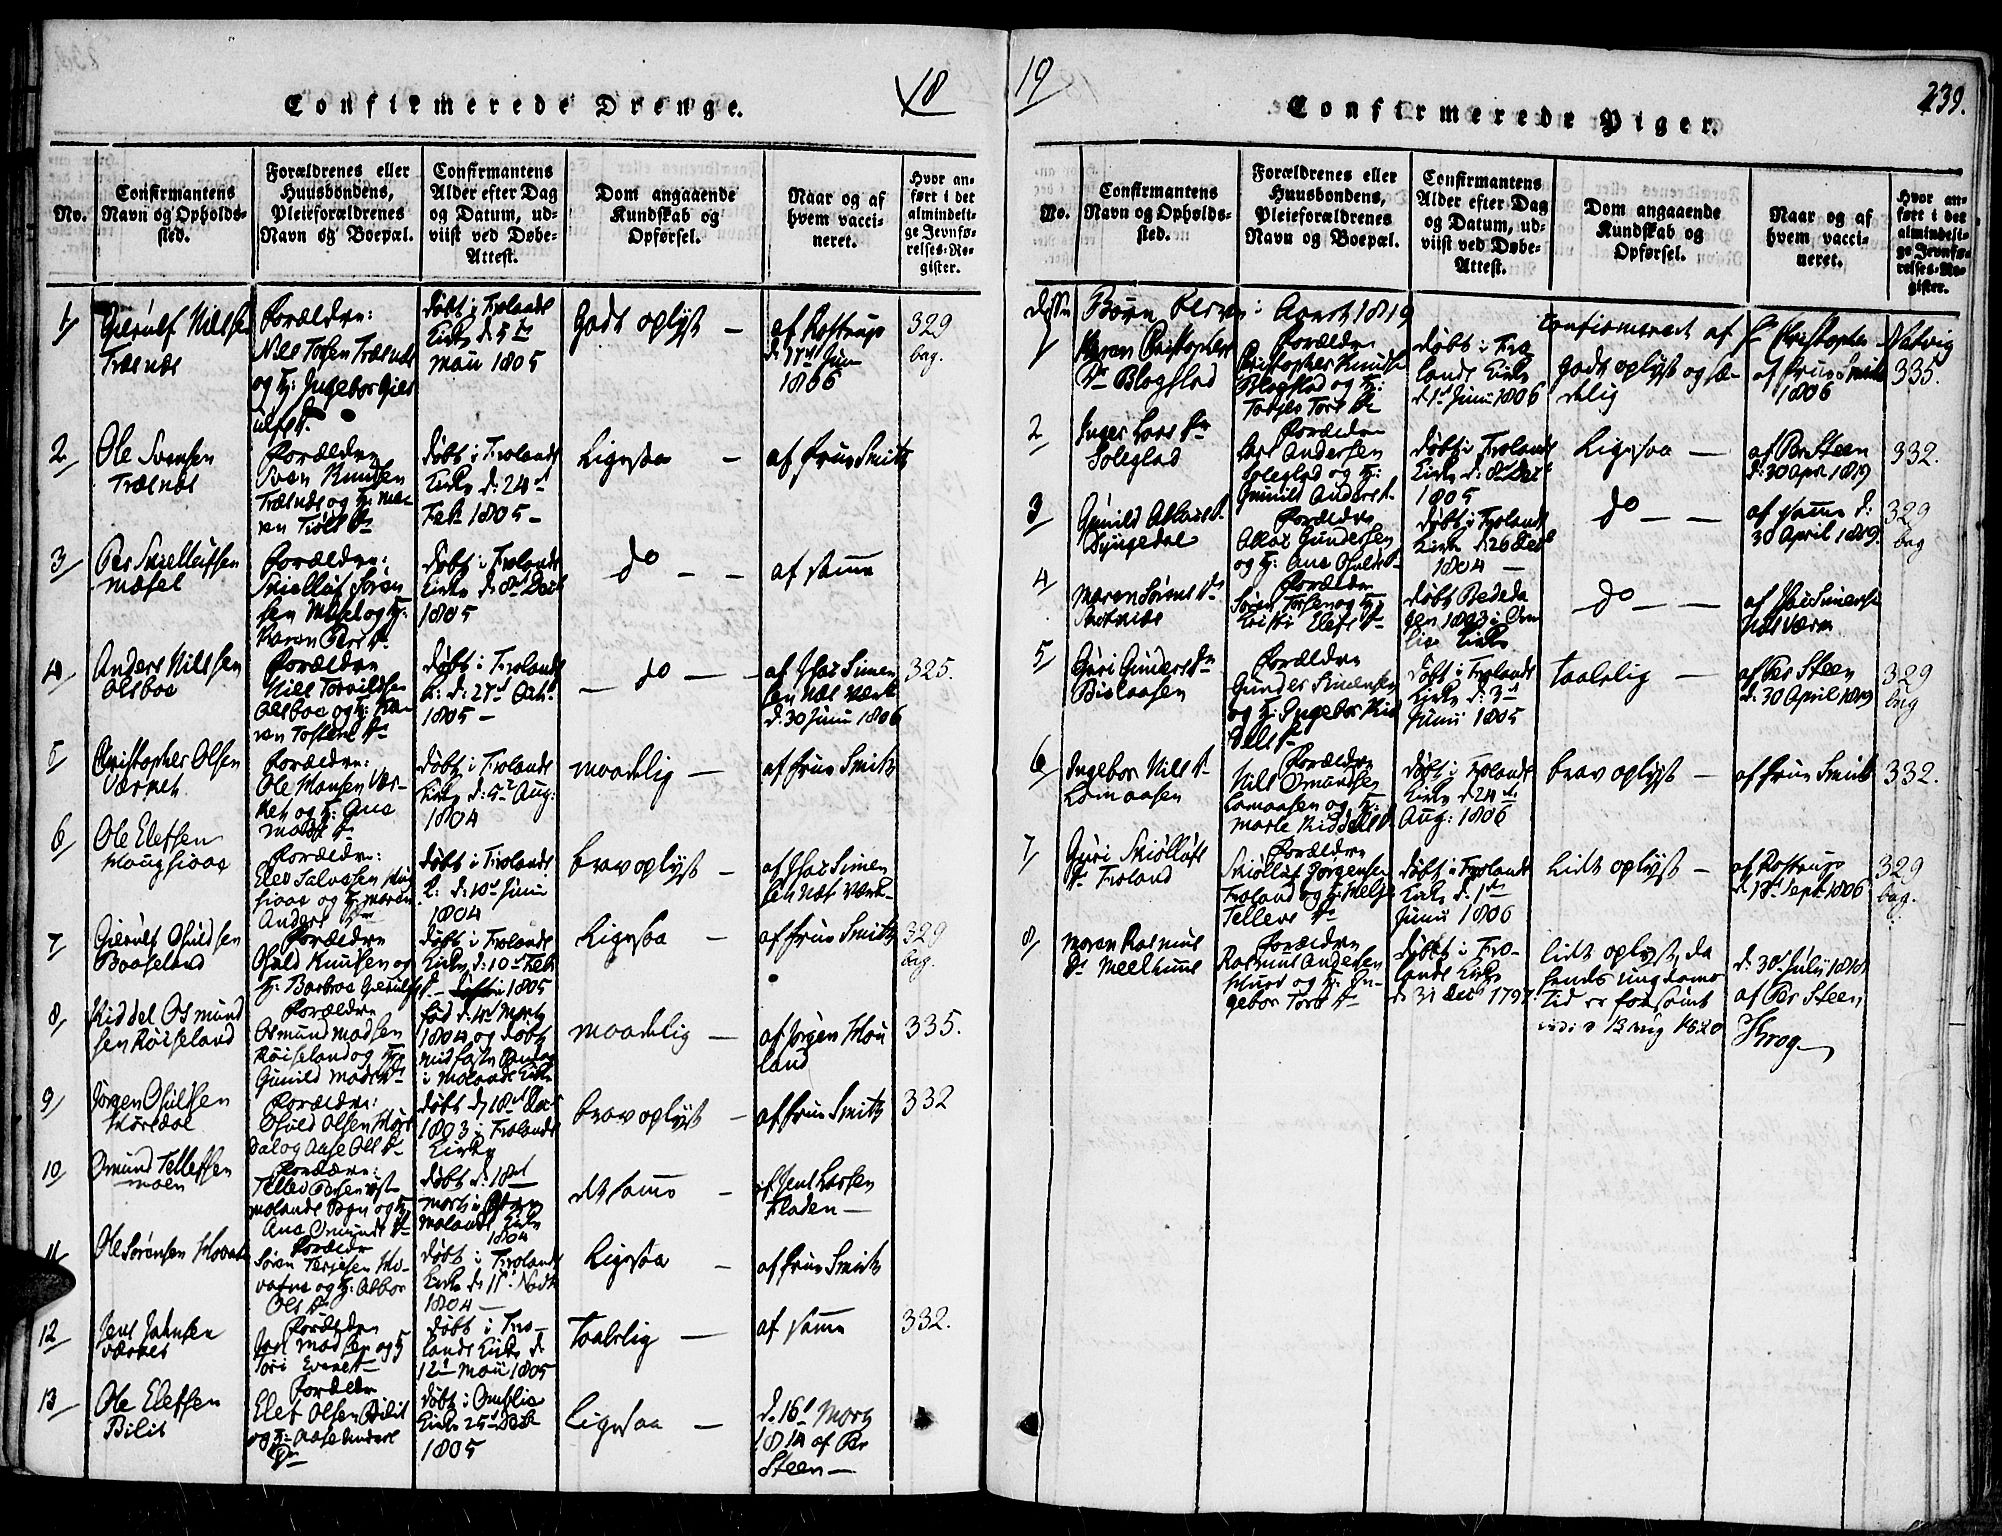 Confirmerede Drenge.
18
No.
Confirmantens
Navn og Opholds-
sted.
Forældrenes eller
Huusbondens,
Pleieforældrenes
Navn og Boepæl.
Confirmantens
Alder efter Dag
og Datum, ud-
viist ved Døbe-
Attest.
Dom angaaende
Kundskab og
Opførsel.
Naar og af
hvem vacci-
neret.
Hvor an-
ført i det
almindeli-
ge Jevnfø-
relses-Re-
gister.
1
Gierulf Nilssen
Trælnæs
Forældre:
Nils Tossen
og K: Ingebor Gier
ulfs D.
døbt i Frolands
Kirke d: 5te
Maii 1805
Godt oplyst —
af Rostrup
1806
329
bag.
2
Ole Svensen
Forældre
Sven Knudsen
døbt i Frolands
Kirke d: 24d
Feb 1805 —
Ligesaa —
af Frue Smith
3
Per Skiellufsen
Mæsel
Forældre:
døbt i Frolands
Kirke d: 8d Dec
1805
do — —
af samme
4
Anders Nilssen
Olsboe
Forældre
Nils Torvildsen
Olsboe og K:
døbt i Frolands
K: d: 27d Oct
1805 —
— do — —
af Jhac Simen
sen Næs Værk
d: 30 Junii 1806
325.
5
Christopher Olsen
Værket
Forældre:
Ole Hansen Vær-
ket og K: Ane
døbt i Frolands
Kirke d: 5t Aug:
1804
maadelig —
af Frue Smith
6
Ole Elefsen
Forældre:
Elef Salvesen
Anders D.
døbt i Frolands
K: d: 10d Junii
1804
brav oplyst —
af Jhac Simen
sen Næs Værk —
7
Gierulf Osuldsen
Boaseland
Forældre
Osuld Knudsen og
K: Barbroe Gierulfs D. —
døbt i Frolands
Kirke d: 10d Feb
1805
Ligesaa —
af Frue Smith
329
bag.
8
Kiddel Osmund
sen Røiseland
Forældre
Osmund Madsen
Røiseland og K:
Gunild Mads D.
fød d: 4d Marty
1804 og døbt
i Molands Kirke
maadelig —
af Jørgen Mou
land
335.
9
Jørgen Osulsen
Forældre:
Osuld Olsen
dal og Aase Ols D.
døbt d: 18d Dec
1803 i Frolands
Kirke
brav oplyst —
af Frue Smith
332
10
Omund Tellefsen
Moen
Forældre:
Ane Omunds D.
døbt d: 18d
Molands Kirke
1804
det samme —
af Jens Larsen
Fladen —
11
Ole Sørensen
Forældre
Søren Terjesen
Ols D.
døbt i Frolands
Kirke d: 11t
1804 —
Ligesaa —
af Frue Smith
12
Jens Jahnsen
Værket
Forældre
Madsen og K
Tori Evens D.
døbt i Fro-
lands Kirke d:
12t Maii 1805
Taalelig —
af samme
332.
13
Ole Elefsen
Bilit
Forældre
Elef Olsen Bilit
og K: Aase Anders
D.
døbt i Omslie
Kirke 25d Dec
1805
Ligesaa —
d: 16d Marty
1814 af Per
Steen —
19
Confirmerede Piger.
239.
No.
Confirmantens
Navn og Opholds-
sted.
Forældrenes eller
Huusbondens,
Pleieforældrenes
Navn og Boepæl.
Confirmantens
Alder efter Dag
og Datum, ud-
viist ved Døbe-
Attest.
Dom angaaende
Kundskab og
Opførsel.
Naar og af
hvem vacci-
neret.
Hvor an-
ført i det
almindeli-
ge Jevnfø-
relses-Re-
gister.
Disse Børn bleve i Aaret 1819
Confirmeret af Hr Christopher Natvig
1
Karen Christophers
D. Blagstad
Forældre
Christopher Knuds
Blagstad og K:
døbt i Fro
lands Kirke
d 1t Junii 1806
godt oplyst og sæ
delig
af Frue Smith
1806
335.
2
Inger Lars D.
Soleglad
Forældre
Lars Andersen
Soleglad og K:
Gunild Anders D.
døbt i Frolands
Kirke d: 8d Dec
1805
Ligesaa —
af Per Steen
d: 30 April 1819
332.
3
Gunild Aslacs D.
Lyngedal
Forældre
Aslac Gundersen
og K: Ane Osulds D.
døbt i Frolands
Kirke d 26 Dec
1804 —
do — —
af samme d:
30 April 1819.
329
bag
4
Maren Sørens D.
Forældre
Søren Torsen og K:
Kristi Elefs D.
døbt Bededa
gen 1803 i Om
lie Kirke
— do — —
af Jhac Simensen
Næs Værn
5
Guri Gunders D.
Bislaasen
Forældre
Gunder Simensen
og K: Ingebor Kid
dels D.
døbt i Frolands
Kirke d: 3d
Junii 1805
taalelig —
af Per Steen
d: 30 April 1819
329
bag
6
Ingebor Nils D.
Lomaasen
Forældre
Nils Omundsen
Lomaasen og K:
Marte Kiddels D.
døbt i Frolands
Kirke d 24de
Aug: 1806
brav oplyst —
af Frue Smith
332.
7
Guri Skiølløfs
D. Froland
Forældre
Skiølløf Jørgensen
Froland og K: Helje
Tellevs D.
døbt i Frolands
Kirke d: 1te
Junii 1806
Lidt oplyst —
af Rostrup
d: 18d Sept 1806
329
bag.
8
Maren Rasmus
D.
Forældre
Rasmus Andersen
og K: In-
gebor Tors D.
døbt i Fro-
lands Kirke
d 31 Dec 1797
lidt oplyst, da
hendes ungdoms
Tid er forsømt
13 Aug 1820
d: 30d July 1818
af Per Steen
Krog